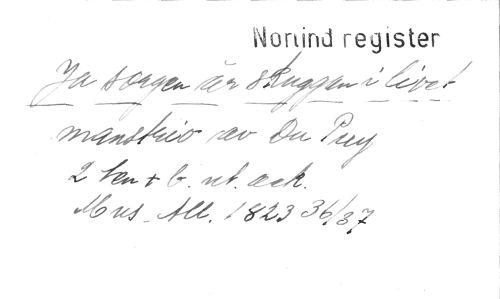 Nonind register
Ja sorgen är skuggan i livet
manskör av Du Puy
2 ten + b. ut. ack.
Mus. All. 1823 36/37